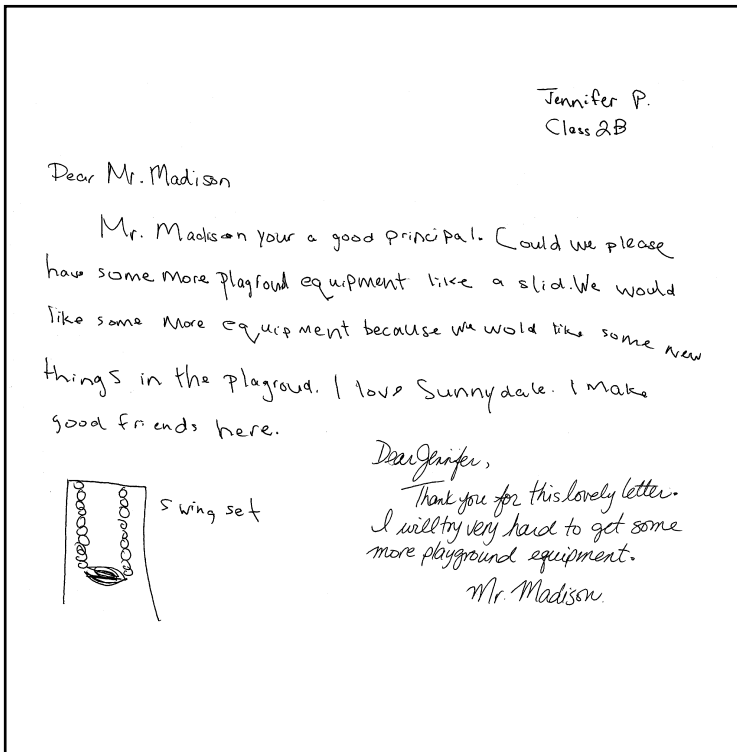 Jennifer P.
Class 2B
Dear Mr. Madison
Mr. Madison your a good principal. Could we please
have some more plagroud equipment like a slid. We would
like some more equipment because we wold like some new
things in the plagroud. I love Sunnydale. I make
good friends here.
swing set
Dear Jennifer,
Thank you for this lovely letter.
I will try very hard to get some
more playground equipment.
Mr. Madison.